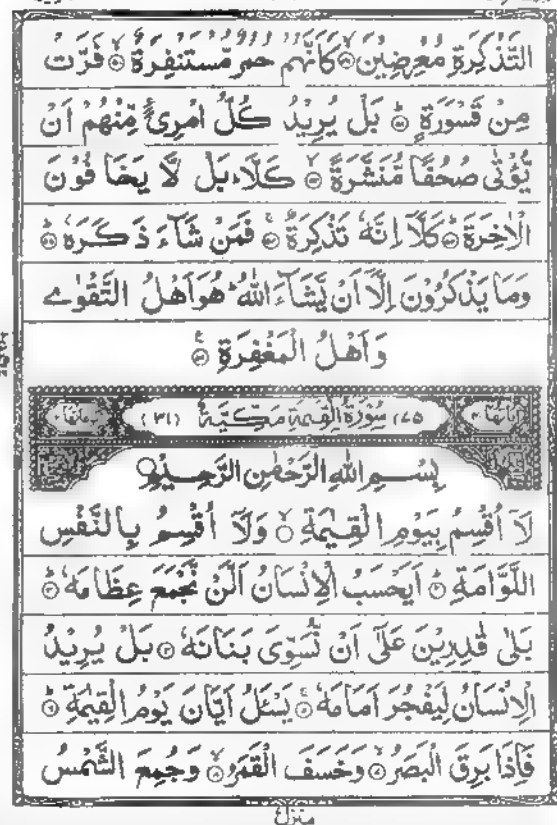 التَّذْكِرَةِ مُعْرِضِيْنَ ۙ﴿۴۹﴾ كَاَنَّهُمْ حُمُرٌ مُّسْتَنْفِرَةٌ ۙ﴿۵۰﴾ فَرَّتْ
مِنْ قَسْوَرَةٍ ؕ﴿۵۱﴾ بَلْ يُرِيْدُ كُلُّ امْرِئٍ مِّنْهُمْ اَنْ
يُّؤْتٰى صُحُفًا مُّنَشَّرَةً ۙ﴿۵۲﴾ كَلَّا ؕ بَلْ لَّا يَخَافُوْنَ
الْاٰخِرَةَ ؕ﴿۵۳﴾ كَلَّاۤ اِنَّهٗ تَذْكِرَةٌ ۚ﴿۵۴﴾ فَمَنْ شَآءَ ذَكَرَهٗ ؕ﴿۵۵﴾
وَمَا يَذْكُرُوْنَ اِلَّاۤ اَنْ يَّشَآءَ اللّٰهُ ؕ هُوَ اَهْلُ التَّقْوٰے
وَاَهْلُ الْمَغْفِرَةِ ۠﴿۵۶﴾
اٰيَاتُهَا ۴۰ (۷۵) سُوْرَةُ الْقِيٰمَةِ مَكِّيَّةٌ (۳۱)
بِسْمِ اللّٰهِ الرَّحْمٰنِ الرَّحِيْمِ
لَاۤ اُقْسِمُ بِيَوْمِ الْقِيٰمَةِ ۙ﴿۱﴾ وَلَاۤ اُقْسِمُ بِالنَّفْسِ
اللَّوَّامَةِ ؕ﴿۲﴾ اَيَحْسَبُ الْاِنْسَانُ اَلَّنْ نَّجْمَعَ عِظَامَهٗ ؕ﴿۳﴾
بَلٰى قٰدِرِيْنَ عَلٰۤى اَنْ نُّسَوِّىَ بَنَانَهٗ ﴿۴﴾ بَلْ يُرِيْدُ
الْاِنْسَانُ لِيَفْجُرَ اَمَامَهٗ ۚ﴿۵﴾ يَسْـَٔلُ اَيَّانَ يَوْمُ الْقِيٰمَةِ ؕ﴿۶﴾
فَاِذَا بَرِقَ الْبَصَرُ ۙ﴿۷﴾ وَخَسَفَ الْقَمَرُ ۙ﴿۸﴾ وَجُمِعَ الشَّمْسُ